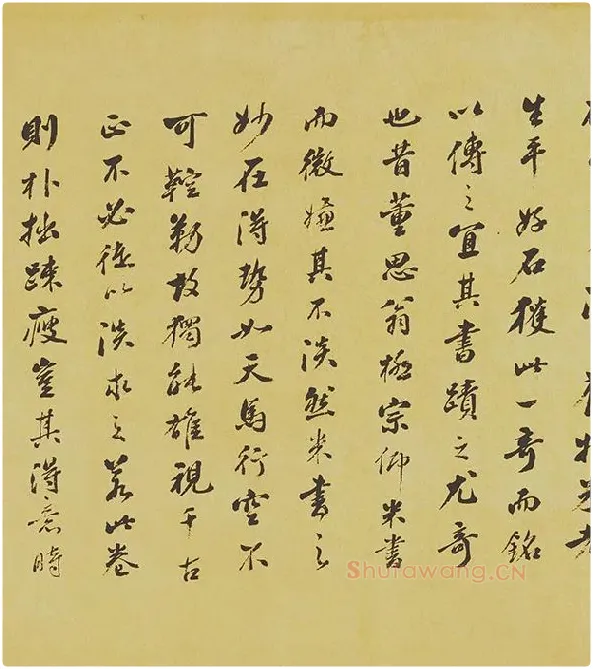 生平好石獲此一奇而銘
以傳之宜其書蹟之尤奇
也昔董思翁極宗仰米書
而微嫌其不淡然米書之
妙在得勢如天馬行空不
可鞚勒故獨能雄視千古
正不必徒以淡求之若此卷
則朴拙疎瘦豈其得意時
Shufawang.CN